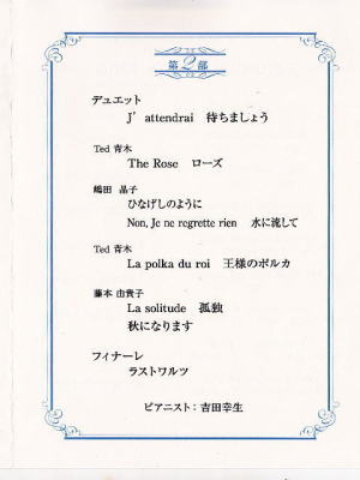 第2部
デュエット
J' attendrai 待ちましょう
Ted 青木
The Rose ローズ
嶋田 晶子
ひなげしのように
Non, Je ne regrette rien 水に流して
Ted 青木
La polka du roi 王様のポルカ
藤本 由貴子
La solitude 孤独
秋になります
フィナーレ
ラストワルツ
ピアニスト：吉田幸生